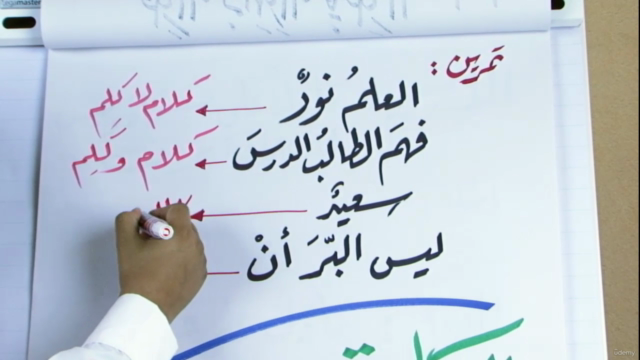 تمرين :
العلمُ نورٌ كلام لا كَلِم
فهمَ الطالبُ الدرسَ كلام وكَلِم
سعيدٌ
ليس البرَّ أنْ